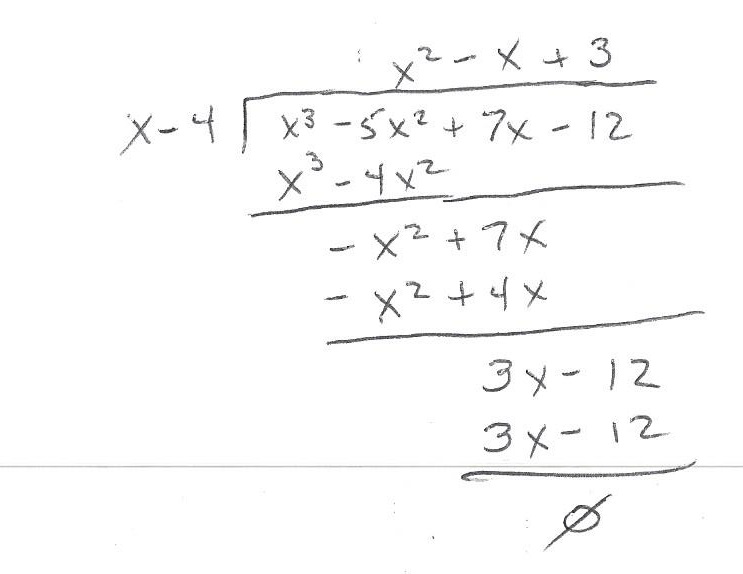 x² - x + 3
x - 4 x³ - 5x² + 7x - 12
x³ - 4x²
- x² + 7x
- x² + 4x
3x - 12
3x - 12
0